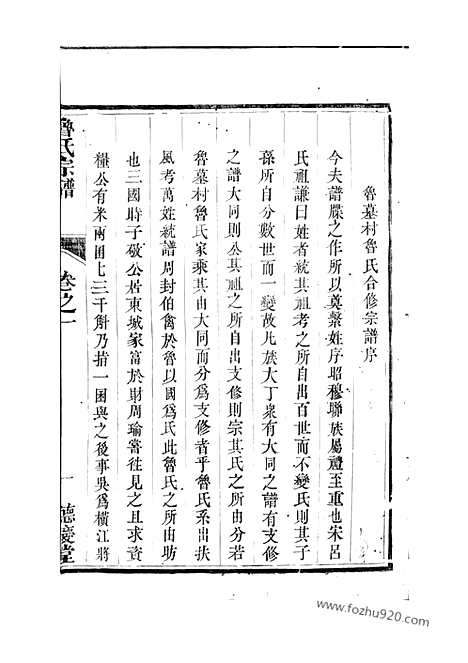 魯墓村魯氏合修宗譜序
今夫譜牒之作所以奠繫姓序昭穆聯族屬禮至重也宋呂
氏祖謙曰姓者統其祖考之所自出百世而不變氏則其子
孫所自分數世而一變故凡族大丁衆有大同之譜有支修
之譜大同則公其祖之所自出支修則宗其氏之所由分若
魯墓村魯氏家乘其由大同而分爲支修者乎魯氏系出扶
風考萬姓統譜周封伯禽於魯以國爲氏此魯氏之所由昉
也三國時子敬公居東城家富於財周瑜嘗往見之且求資
糧公有米兩囷七三千斛乃指一囷與之後事吳爲橫江將
魯氏宗譜
卷之一
一
德慶堂
www.fozhu920.com